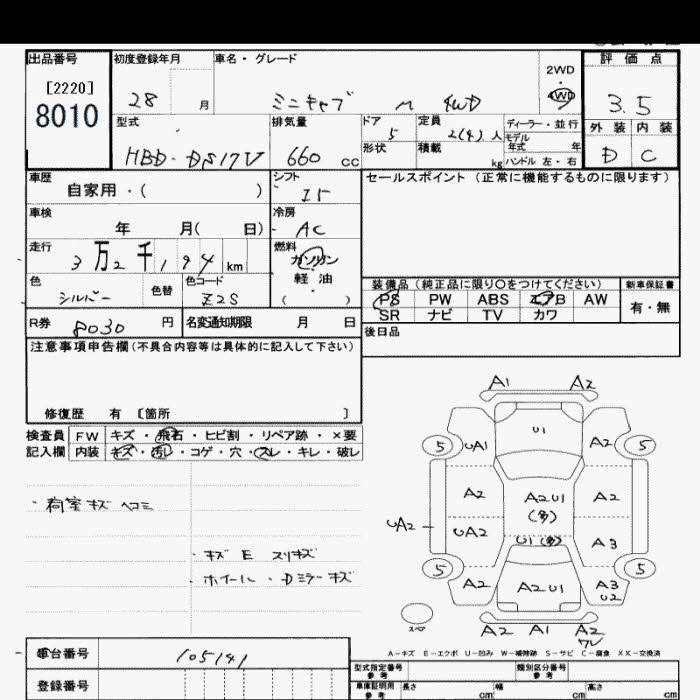 出品番号 初度登録年月 車名・グレード 評価点
[2220]
8010
28 月 ミニキャブ M 4WD
2WD
・
4WD
3.5
型式 排気量 ドア 5 定員 2(4)人 ディーラー・並行
モデル年式 年
外装 内装
HBD-DS17V 660 cc 形状 積載 kg ハンドル 左・右 D C
車歴 自家用・( ) シフト I5 セールスポイント (正常に機能するものに限ります)
車検 年 月( 日) 冷房 AC
走行 3万2千194 km 燃料 ガソリン
軽油
( )
色 シルバー 色替 色コード Z2S
装備品(純正品に限り○をつけてください) 新車保証書
PS PW ABS エアB AW 有・無
SR ナビ TV カワ
R券 8030 円 名変通知期限 月 日
後日品
注意事項申告欄(不具合内容等は具体的に記入して下さい)
修復歴 有 〔箇所 〕
検査員 FW キズ・飛石・ヒビ割・リペア跡・×要
記入欄 内装 キズ・汚レ・コゲ・穴・スレ・キレ・破レ
・荷室キズ ヘコミ
・キズ E スリキズ
・ホイール・Dミラーキズ
A1 A2
U1
5 UA1 A2 5
A2 A2U1 (多) A2
UA2
UA2 U1(多) A3
5 5
A2 A2U1 A3 U2
スペア
A2 A1 A2
A-キズ E-エクボ U-凹み W-補修跡 S-サビ C-腐食 XX-交換済
車台番号 105141
登録番号
型式指定番号 参考 類別区分番号 参考
車庫証明用 参考 長さ cm 幅 cm 高さ cm